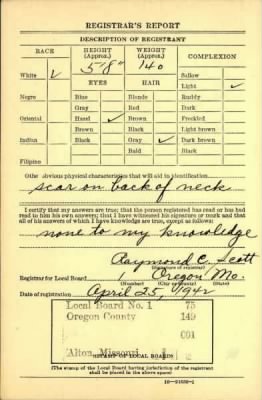 REGISTRAR'S REPORT
DESCRIPTION OF REGISTRANT
RACE HEIGHT (Approx.) WEIGHT (Approx.) COMPLEXION
5'8" 140
White ✓ Sallow
EYES HAIR Light ✓
Negro Blue Blonde Ruddy
Gray Red Dark
Oriental Hazel ✓ Brown Freckled
Brown Black Light brown
Indian Black Gray ✓ Dark brown
Bald Black
Filipino
Other obvious physical characteristics that will aid in identification
scar on back of neck
I certify that my answers are true; that the person registered has read or has had
read to him his own answers; that I have witnessed his signature or mark and that
all of his answers of which I have knowledge are true, except as follows:
none to my knowledge
Raymond C. Scott
(Signature of registrar)
Registrar for Local Board 1 Oregon Mo.
(Number) (City or county) (State)
Date of registration April 25, 1942
Local Board No. 1 75
Oregon County 149
001
Alton Missouri 1
(STAMP OF LOCAL BOARD)
(The stamp of the Local Board having jurisdiction of the registrant
shall be placed in the above space)
16—21630-1